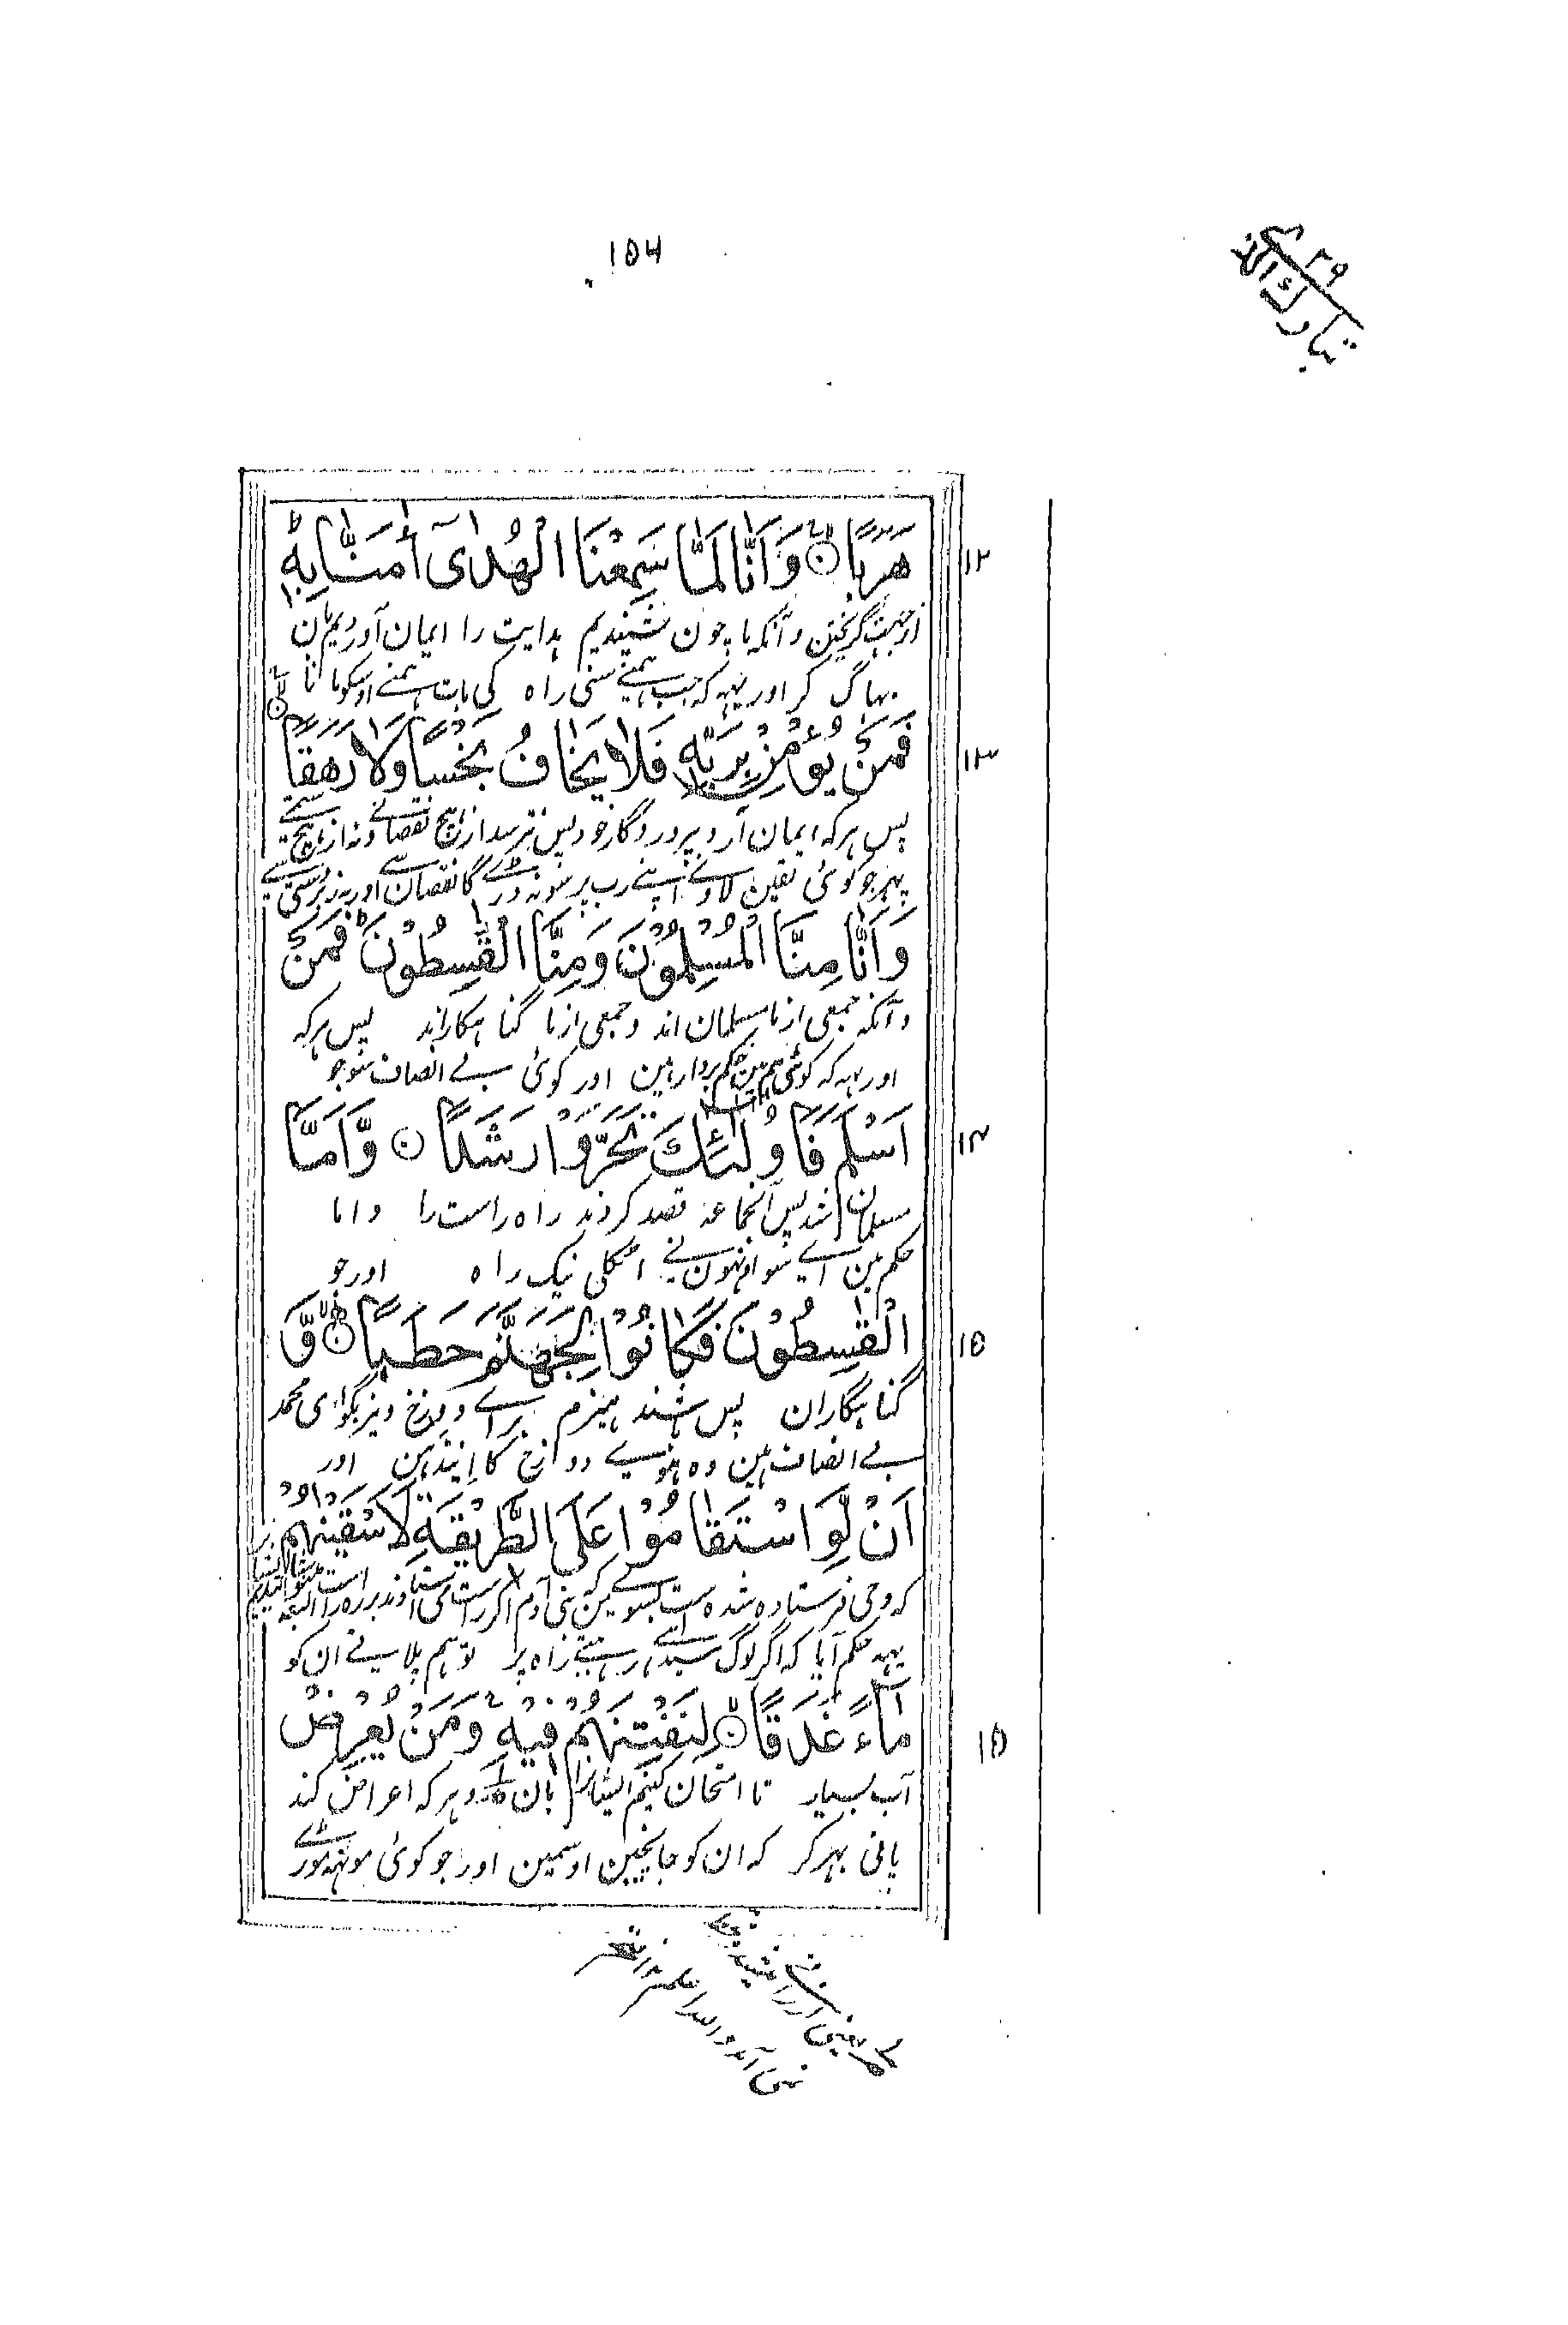 ۱۵۶
۲۹
تبارك الذی
هَرَبًا ۝ وَاَنَّا لَمَّا سَمِعْنَا الْهُدٰىٓ اٰمَنَّا بِهٖ ؕ
۱۲
از جہت گریختن و آنکہ ما چون شنیدیم ہدایت را ایمان آوردیم بآن
بہاگ کر اور یہہ کہ جب ہمنے سنی راہ کی بات ہمنے اوسکو مانا
فَمَنْ يُّؤْمِنْۢ بِرَبِّهٖ فَلَا يَخَافُ بَخْسًا وَّلَا رَهَقًا ۝
۱۳
پس ہر کہ ایمان آرد بپروردگار خود پس نترسد از ہیچ نقصانے و نہ از ہیچ ستمے
پہر جو کوئی یقین لاوے اپنے رب پر سو نہ ڈرے گا نقصان سے اور نہ زبردستی سے
وَاَنَّا مِنَّا الْمُسْلِمُوْنَ وَمِنَّا الْقٰسِطُوْنَ ؕ فَمَنْ
و آنکہ جمعی از ما مسلمان اند و جمعی از ما گناہکارانند پس ہر کہ
اور یہہ کہ کوئی ہم مین حکم بردار ہین اور کوئی بے انصاف سو جو
اَسْلَمَ فَاُولٰٓئِكَ تَحَرَّوْا رَشَدًا ۝ وَّاَمَّا
۱۴
مسلمان شد پس آنجماعہ قصد کردند راہ راست را و اما
حکم مین آے سو اونہون نے اٹکلی نیک راہ اور جو
الْقٰسِطُوْنَ فَكَانُوْا لِجَهَنَّمَ حَطَبًا ۝ وَّ
۱۵
گناہگاران پس شدند ہیزم براے دوزخ و نیز بگو ای محمد
بے انصاف ہین وہ ہوے دوزخ کا ایندہن اور
اَنْ لَّوِ اسْتَقَامُوْا عَلَى الطَّرِيْقَةِ لَاَسْقَيْنٰهُمْ
کہ وحی فرستادہ شدہ است بسوے من کہ بنی آدم اگر راست می استاوند بر راہ راست البتہ
یہہ حکم آیا کہ اگر لوگ سیدہے رہتے راہ پر تو ہم پلاتے ان کو
مَّآءً غَدَقًا ۝ لِّنَفْتِنَهُمْ فِيْهِ ؕ وَمَنْ يُّعْرِضْ
۱۵
آب بسیار تا امتحان کنیم ایشانرا بآن و ہر کہ اعراض کند
پانی بہر کر کہ ان کو جانچین اوسمین اور جو کوئی مونہہ موڑے